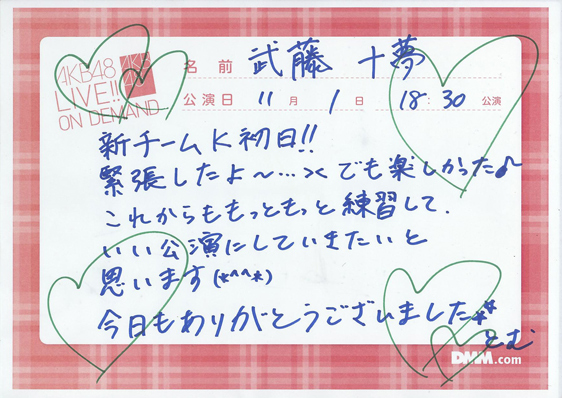 AKB48
LIVE!!
ON DEMAND
AKB
48
名前 武藤 十夢
公演日 11月 1日 18:30 公演
新チームK初日!!
緊張したよ〜...>< でも楽しかった♪
これからももっともっと練習して、
いい公演にしていきたいと
思います(*^^*)
今日もありがとうございました**
とむ
DMM.com